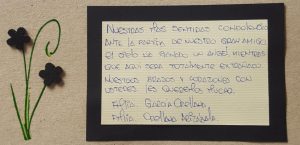 NUESTRAS MÁS SENTIDAS CONDOLENCIAS
ANTE LA PARTIDA DE NUESTRO GRAN AMIGO
EL CIELO HA GANADO UN ANGEL MIENTRAS
QUE AQUI SERA TOTALMENTE EXTRAÑADO
NUESTROS ABRAZOS Y CORAZONES CON
USTEDES LES QUEREMOS MUCHO.
FAMILIA GARCIA ORELLANA
FAMILIA ORELLANA